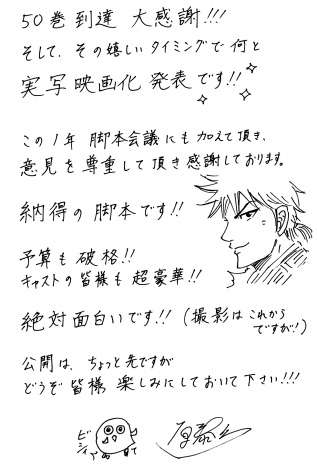 50巻到達 大感謝!!!
そして、その嬉しいタイミングで何と
実写映画化発表です!!
この1年 脚本会議にも加えて頂き、
意見を尊重して頂き感謝しております。
納得の脚本です!!
予算も破格!!
キャストの皆様も超豪華!!
絶対面白いです!!(撮影はこれから
ですが!)
公開は、ちょっと先ですが
どうぞ皆様 楽しみにしておいて下さい!!!